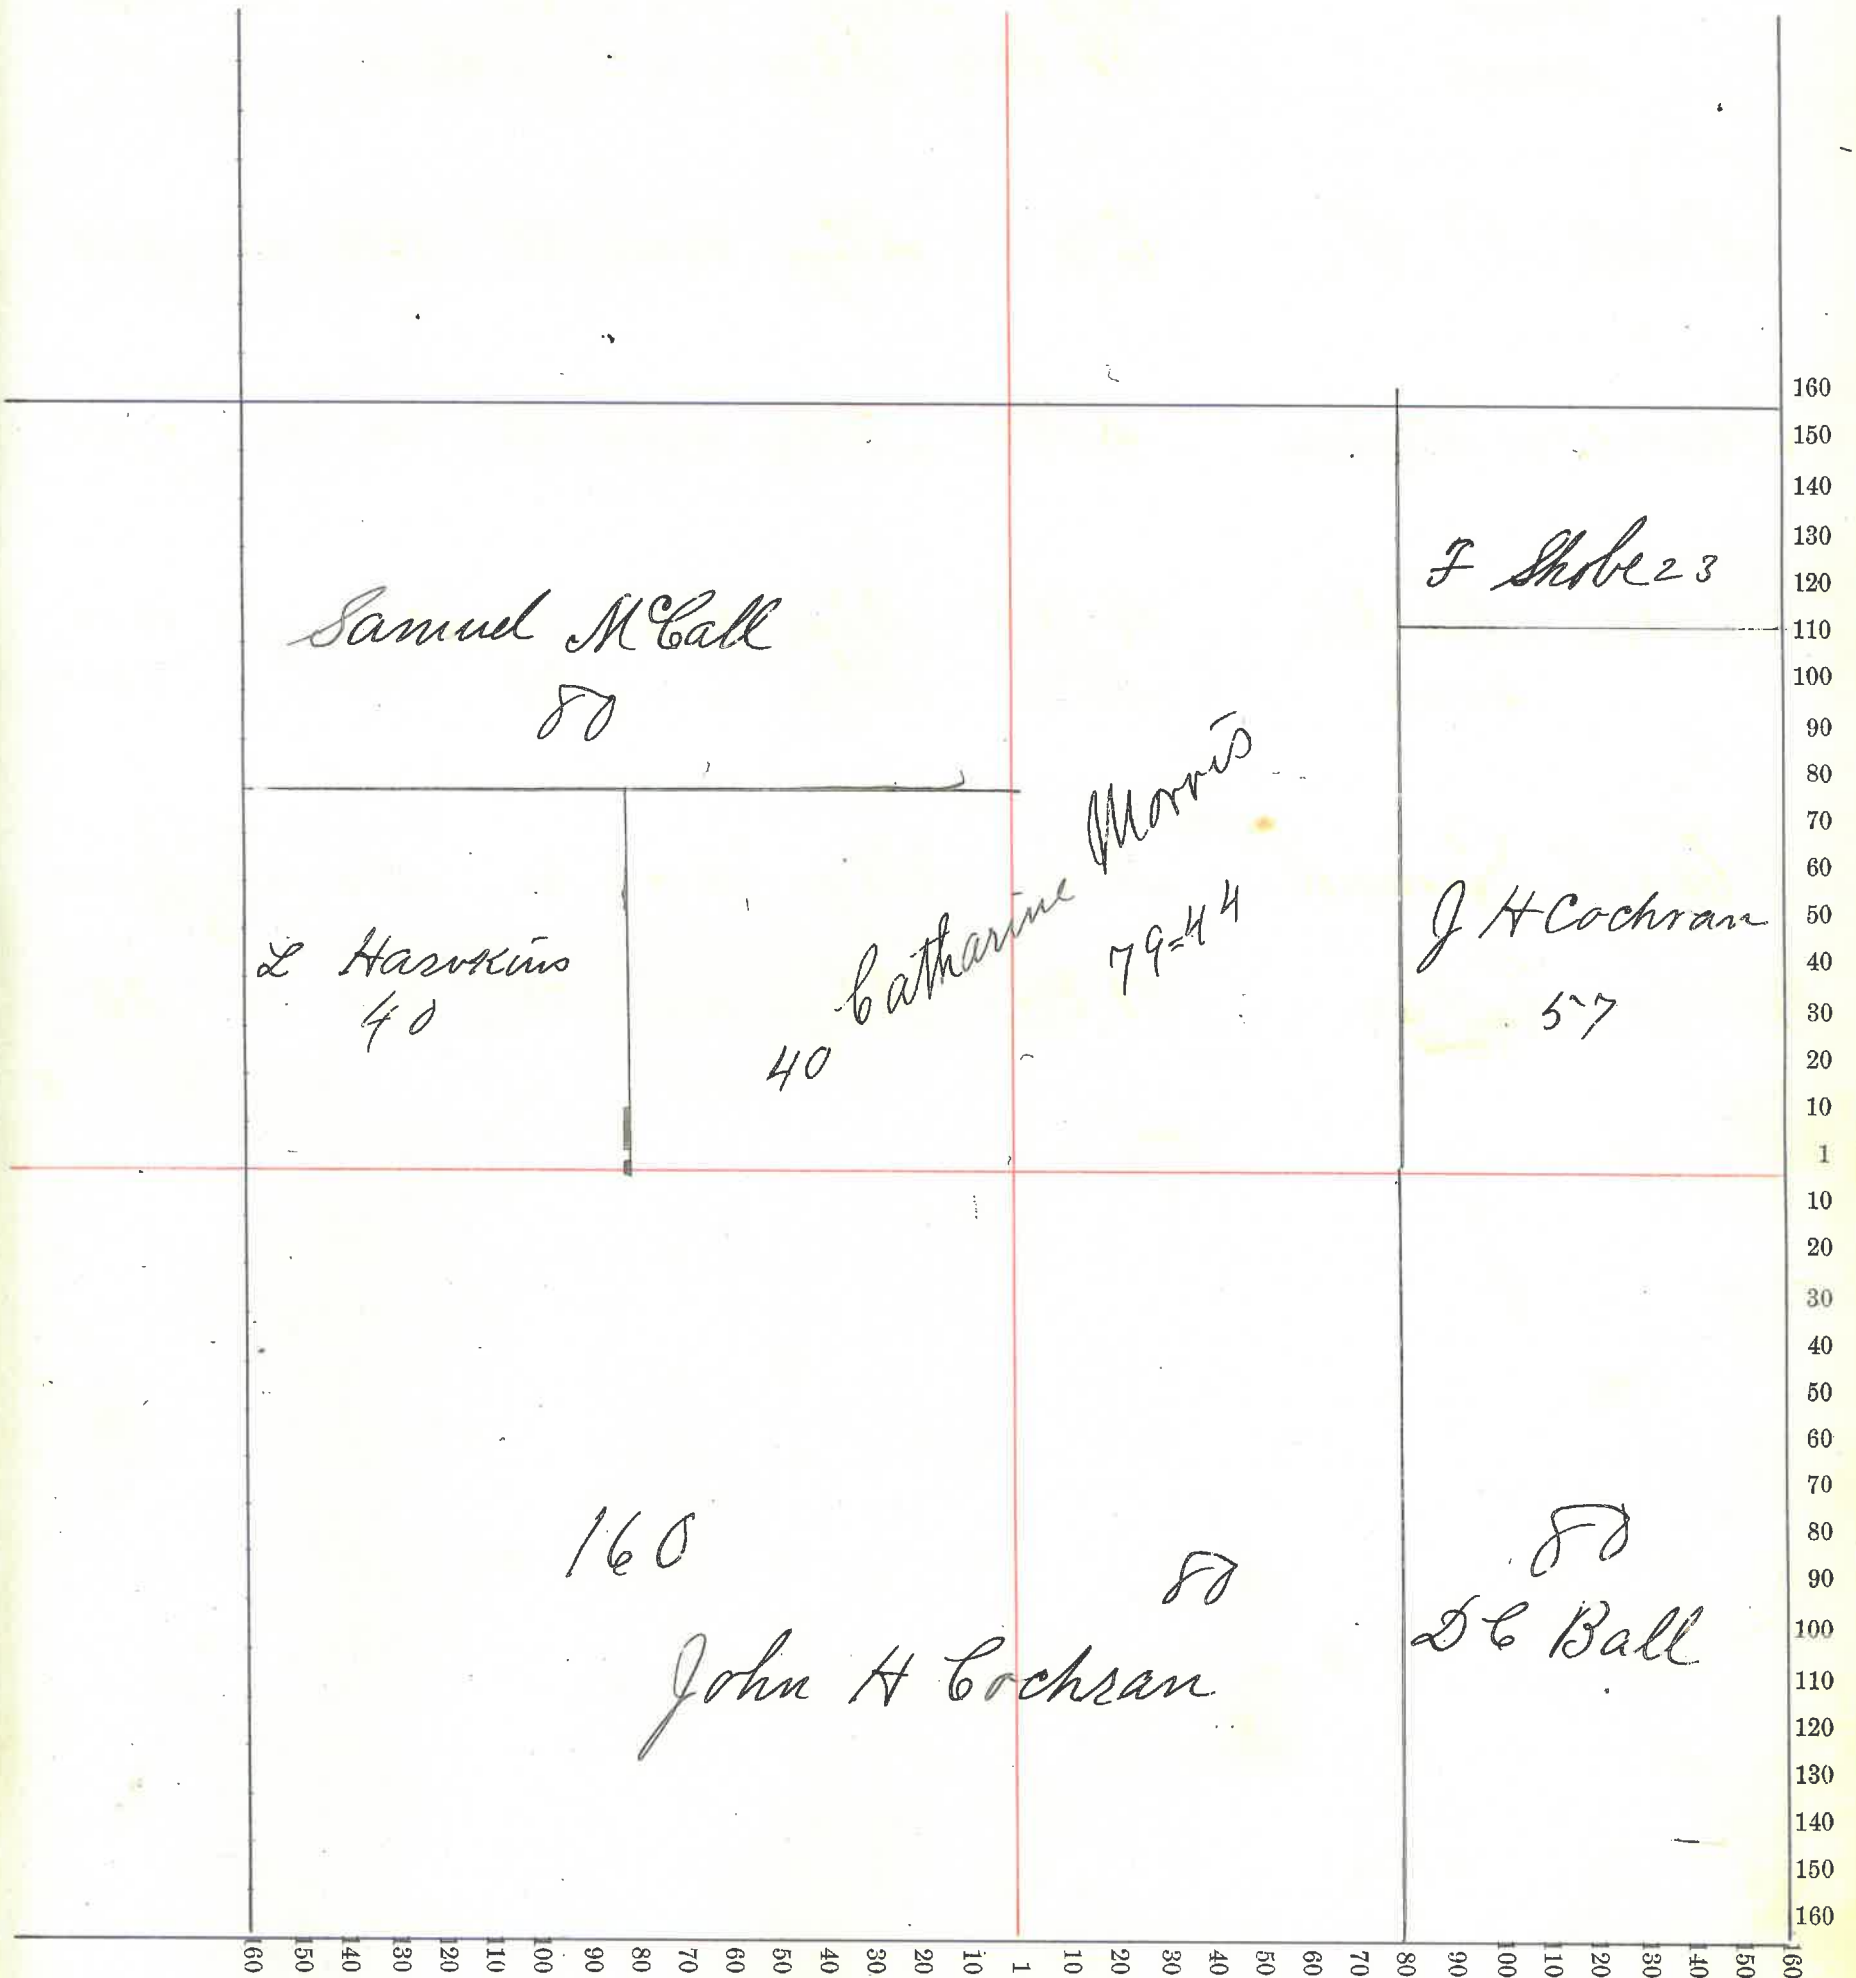 Samuel McCall
80
F Shobe 23
L Hawkins
40
Catharine Morris
40
79=44
J H Cochran
57
160
80
John H Cochran
80
D C Ball
160
150
140
130
120
110
100
90
80
70
60
50
40
30
20
10
1
10
20
30
40
50
60
70
80
90
100
110
120
130
140
150
160
160 150 140 130 120 110 100 90 80 70 60 50 40 30 20 10 1 10 20 30 40 50 60 70 80 90 100 110 120 130 140 150 160